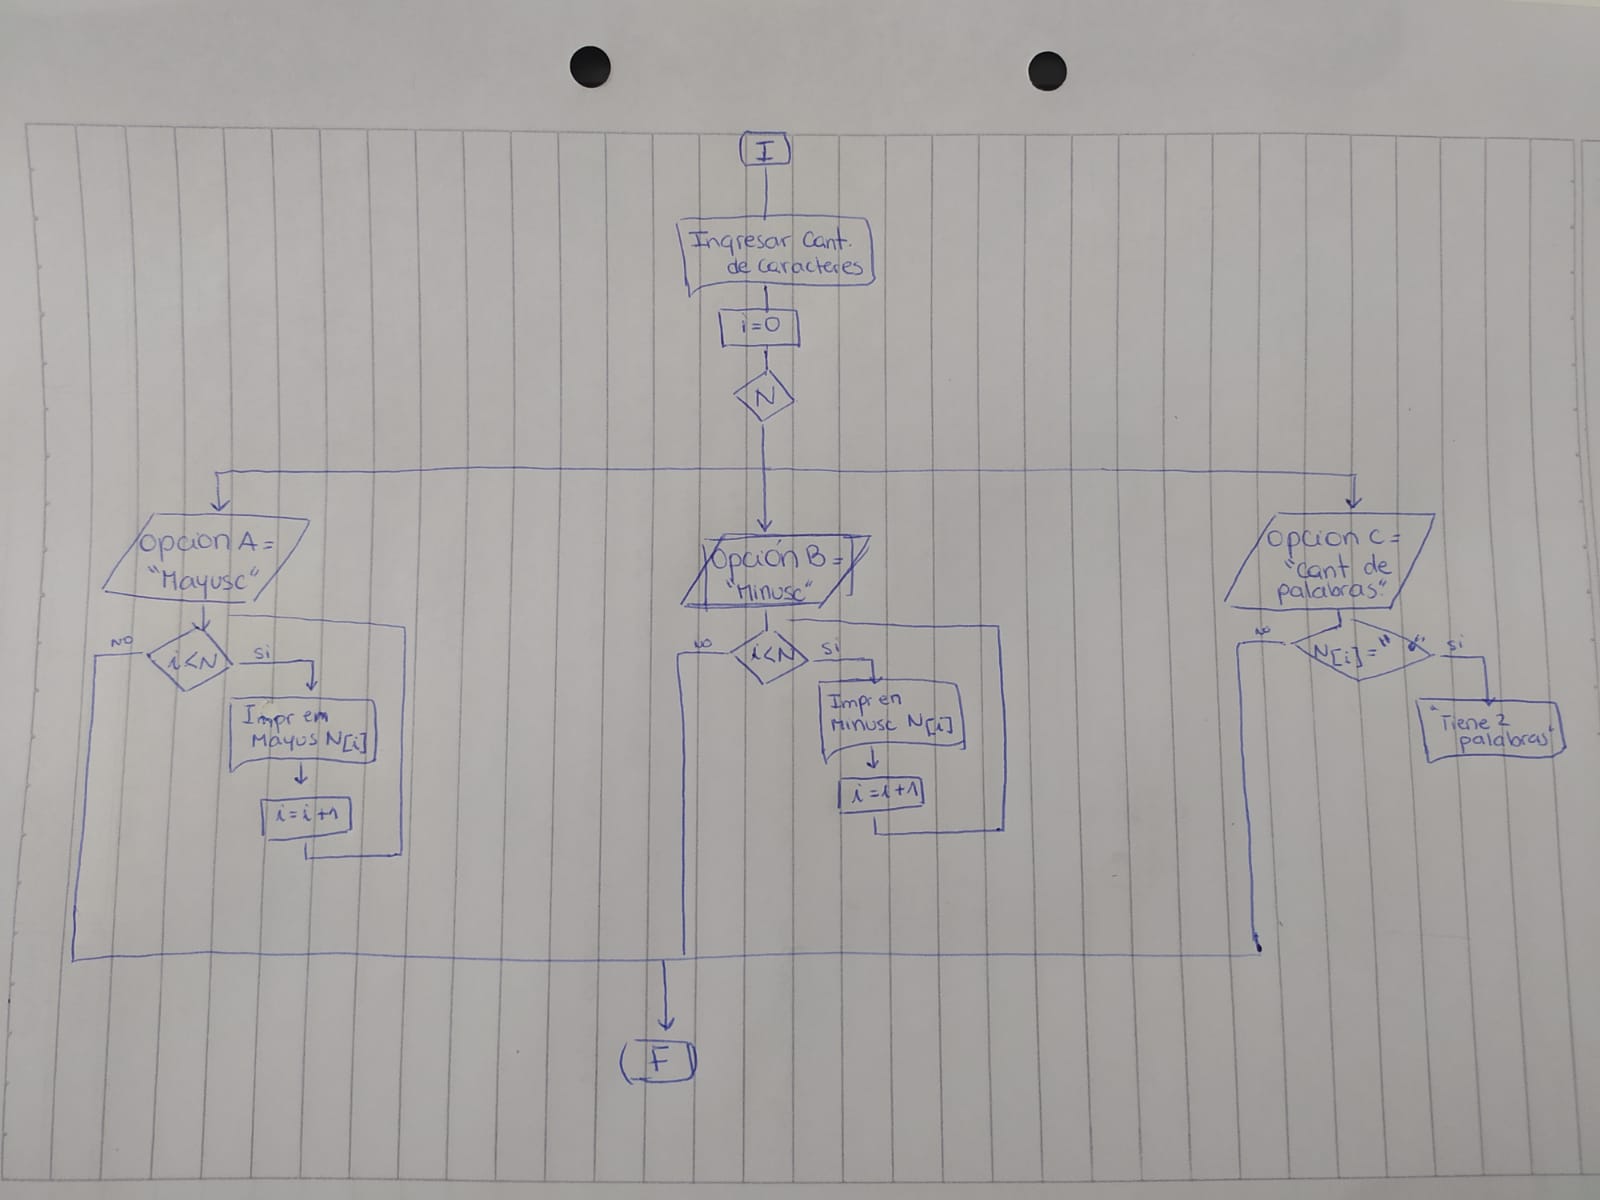 I
Ingresar Cant.
de caracteres
i=0
N
Opcion A=
"Mayusc"
NO
i<N
Si
Impr em
Mayus N[i]
i=i+1
Opción B=
"Minusc"
NO
i<N
Si
Impr en
Minusc N[i]
i=i+1
Opcion C=
"Cant de
palabras"
NO
N[i]=" "
Si
"Tiene 2
palabras"
F